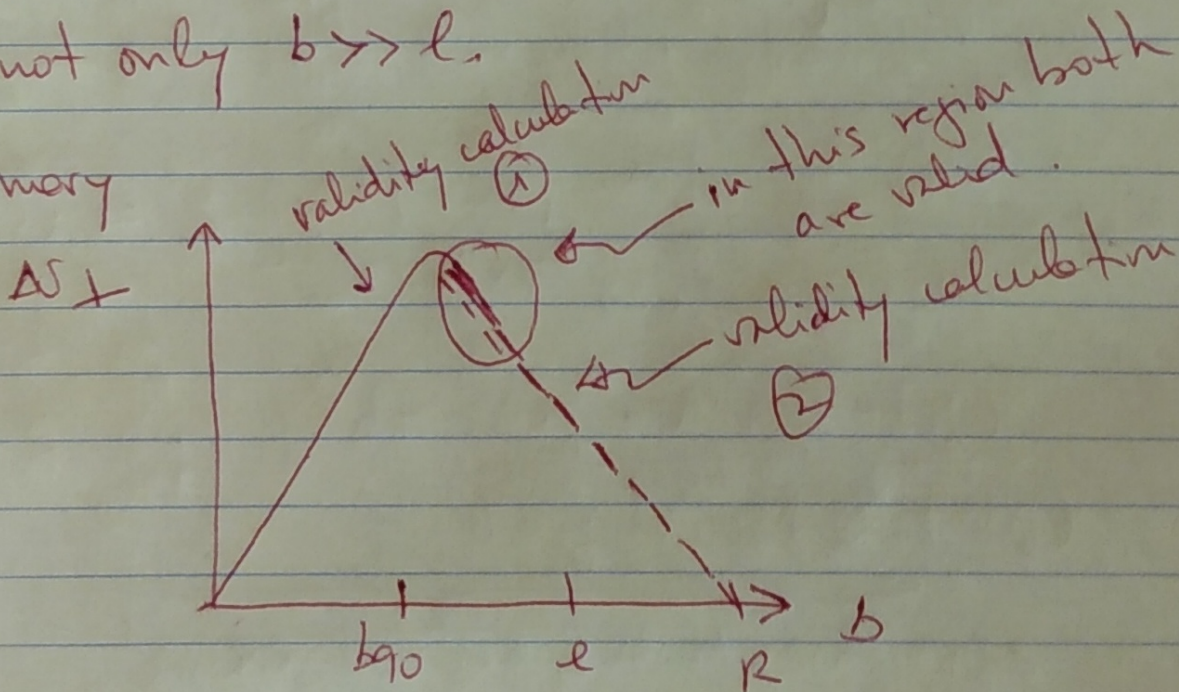 not only b >> l.
mary
validity calculation
①
in this region both
are valid.
Δv⊥
validity calculation
②
b90 l R b